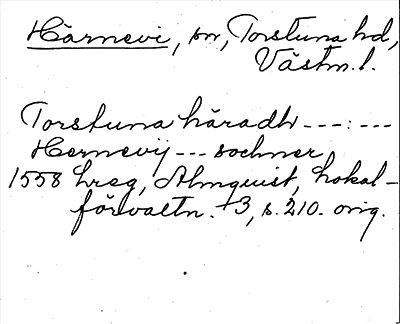 Härnevi, sn, Torstuna hd,
Västm. l.
Torstuna häradh ---:---
Hernevij --- sochner
1558 hreg, Almquist, Lokal-
förvaltn. +3, s. 210. orig.